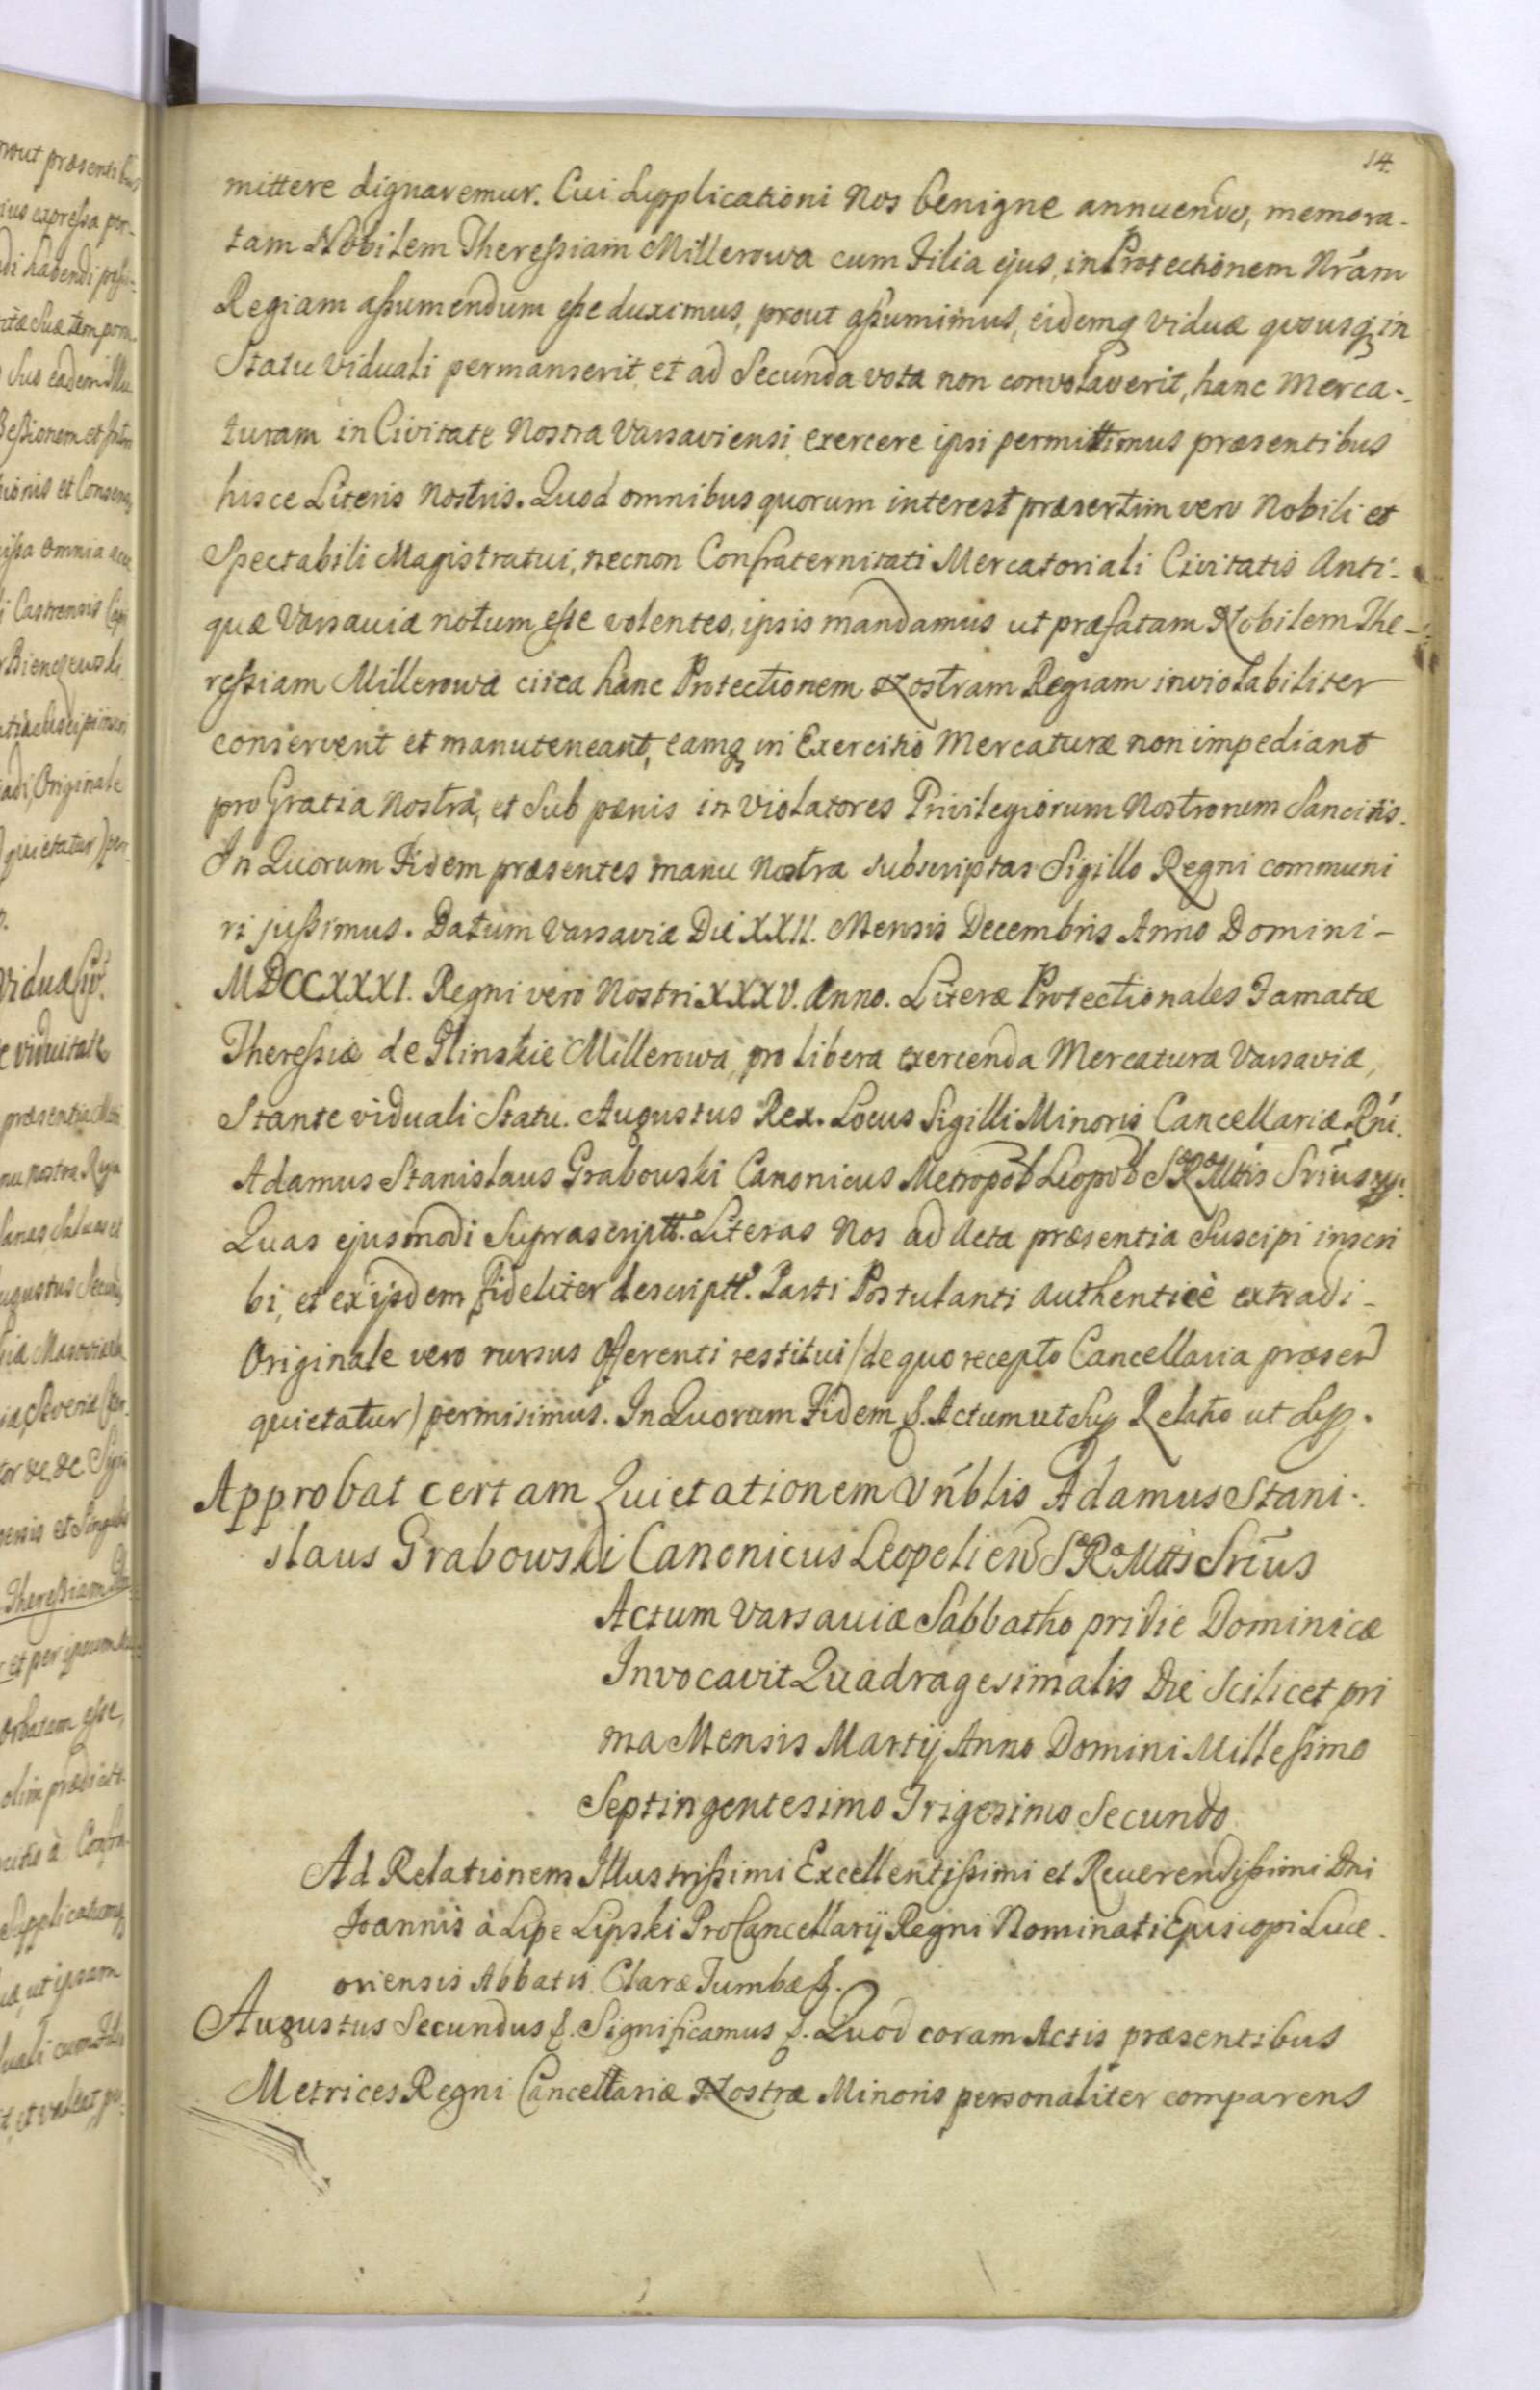 14.
mittere dignaremur. Cui Supplicationi Nos benigne annuendo, memora-
tam Nobilem Theressiam Millerowa cum Filia ejus, in Protectionem Nrám
Regiam assumendum esse duximus, prout assumimus, eidemq viduæ quousq in
Statu viduali permanserit et ad Secunda vota non convolaverit, hanc Merca-
turam in Civitate Nostra Varsaviensi exercere ipsi permittimus præsentibus
hisce Literis Nostris. Quod omnibus quorum interest præsertim vero Nobili et
Spectabili Magistratui, necnon Confraternitati Mercatoriali Civitatis Anti-
quæ Varsaviæ notum esse volentes, ipsis mandamus ut præfatam Nobilem The-
ressiam Millerowa circa hanc Protectionem Nostram Regiam inviolabiliter
conservent et manuteneant, eamq in Exercitio Mercaturæ non impediant
pro Gratia Nostra, et Sub pœnis in violatores Privilegiorum Nostrorum Sancitis.
In Quorum Fidem præsentes manu Nostra subscriptas Sigillo Regni communi
ri jussimus. Datum Varsaviæ Die XXII. Mensis Decembris Anno Domini-
MDCCXXXI. Regni vero Nostri XXXV. Anno. Literæ Protectionales Famatæ
Theressiæ de Glinskie Millerowa, pro libera exercenda Mercatura Varsaviæ,
Stante viduali Statu. Augustus Rex. Locus Sigilli Minoris Cancellariæ Rńi.
Adamus Stanislaus Grabowski Canonicus Metropol Leopol S R Mttis Srius
Quas ejusmodi Suprascriptt. Literas Nos ad Acta præsentia Suscipi inscri
bi, et ex ijsdem fideliter descriptt. Parti Postulanti authenticè extradi-
Originale vero rursus Offerenti restitui (de quo recepto Cancellaria præsen
quietatur) permisimus. In Quorum Fidem f. Actum ut Sup Relatio ut Sup.
Approbat certam Quietationem Vńblis Adamus Stani-
slaus Grabowski Canonicus Leopolien S R Mttis Srius
Actum Varsaviæ Sabbatho pridie Dominicæ
Invocavit Quadragesimalis Die Scilicet pri
ma Mensis Martij Anno Domini Millesimo
Septingentesimo Trigesimo Secundo
Ad Relationem Illustrissimi Excellentissimi et Reverendissimi Dni
Joannis à Lipe Lipski ProCancellarij Regni Nominati Episcopi Luce-
oriensis Abbatis Claræ Tumbæ f.
Augustus Secundus f. Significamus f. Quod coram Actis præsentibus
Metrices Regni Cancellariæ Nostræ Minoris personaliter comparens